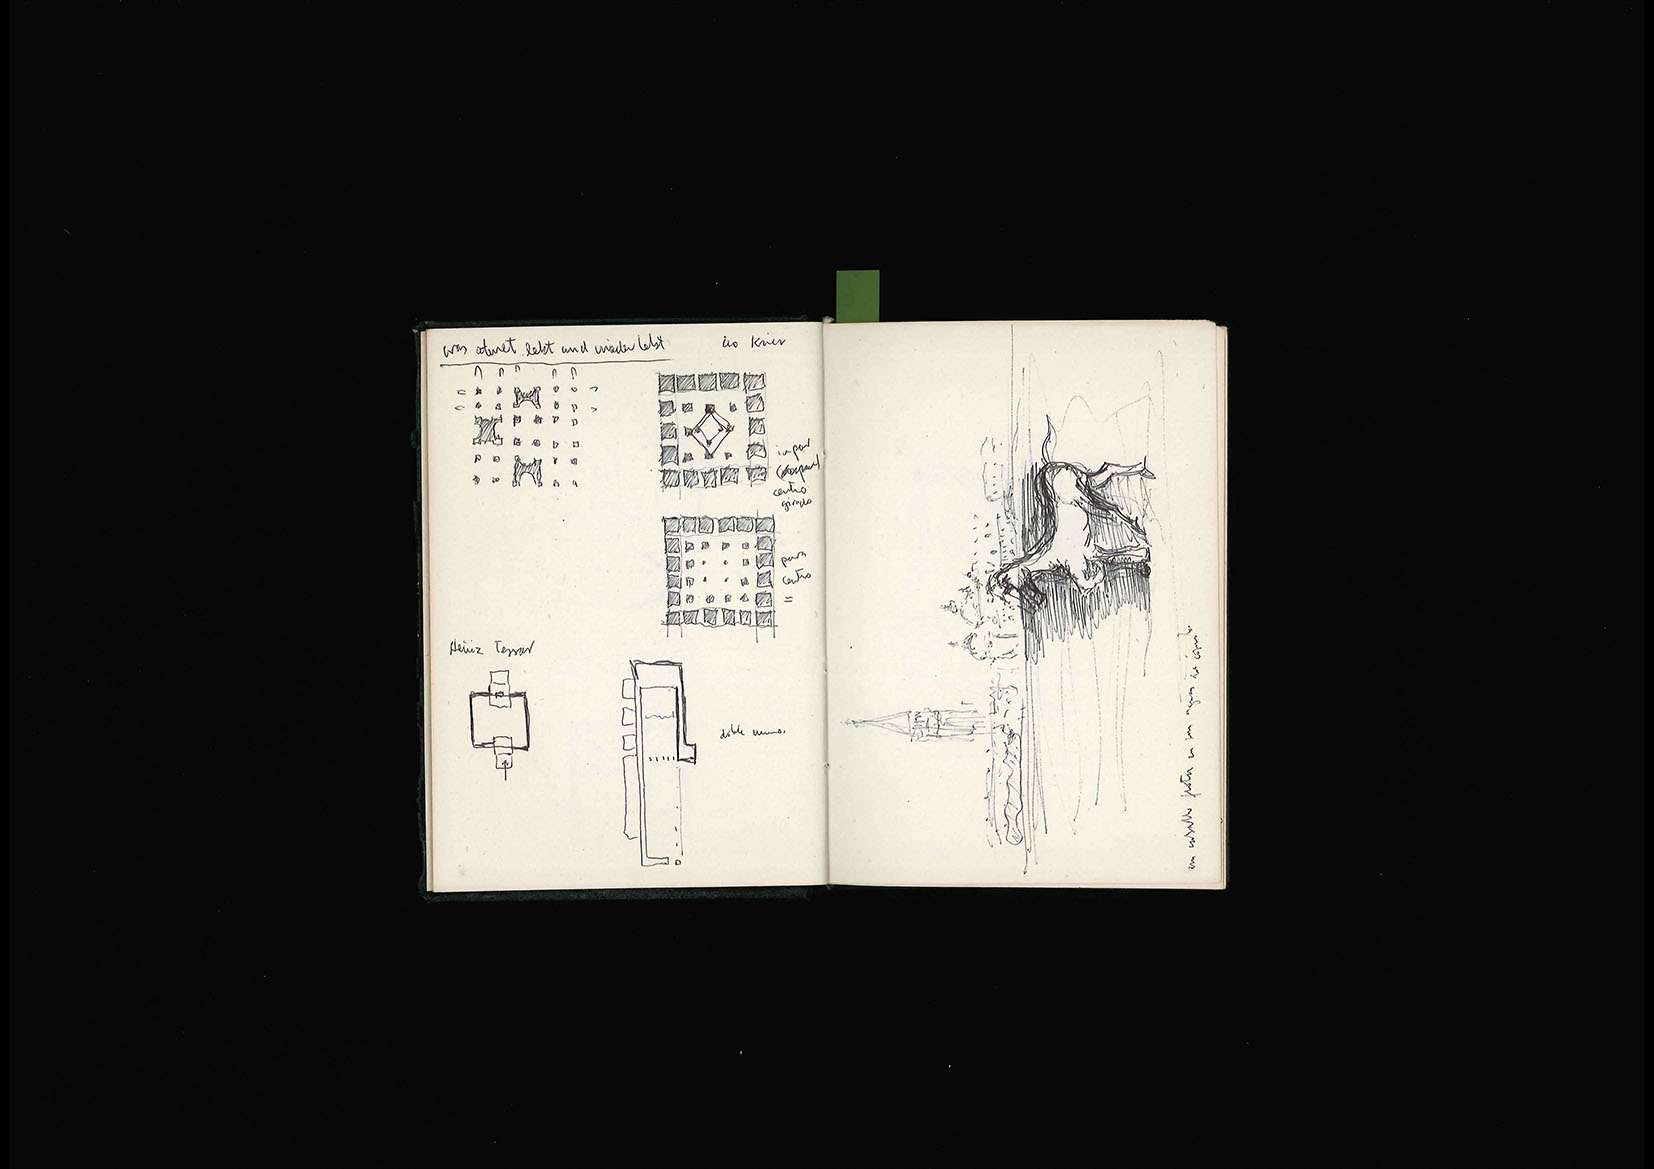 was atmet lebt und wieder lebt
Leo Krier
impar
centro
girado
para
centro
=
Heinz Tesar
doble muro.
un caballo pasta en un